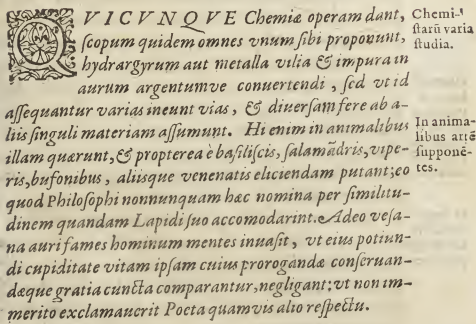 QVICVNQVE Chemiæ operam dant,
ſcopum quidem omnes vnum ſibi proponunt,
hydrargyrum aut metalla vilia & impura in
aurum argentumve conuertendi, ſed vt id
aſſequantur varias ineunt vias, & diuerſam fere ab a-
liis ſinguli materiam aſſumunt. Hi enim in animalibus
illam quærunt, & propterea è baſiliſcis, ſalamãdris, vipe-
ris, bufonibus, aliisque venenatis eliciendam putant; eo
quod Philoſophi nonnunquam hæc nomina per ſimilitu-
dinem quandam Lapidi ſuo accomodarint. Adeo veſa-
na auri fames hominum mentes inuaſit, vt eius potiun-
di cupiditate vitam ipſam cuius prorogandæ conſeruan-
dæque gratia cuncta comparantur, negligant; vt non im-
merito exclamauerit Poeta quamvis alio reſpectu.
Chemi-
ſtarũ varia
ſtudia.
In anima-
libus artẽ
ſupponẽ-
tes.